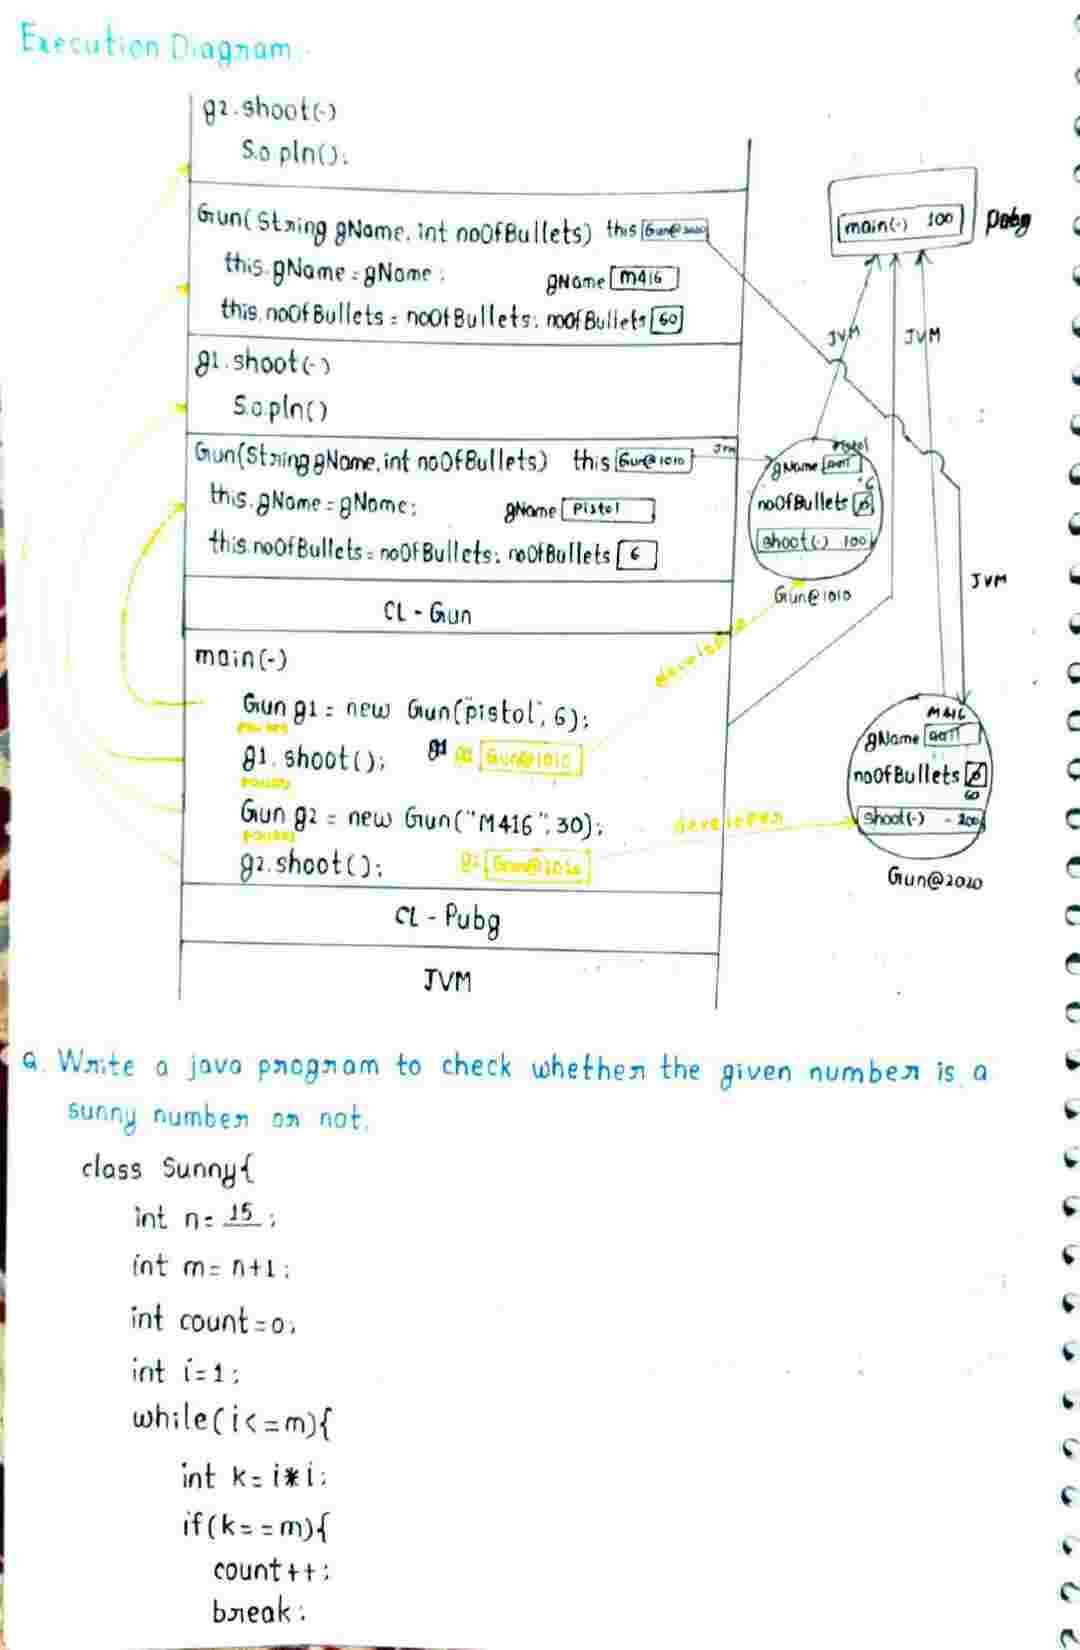 Execution Diagram:-
g2.shoot(-)
S.o.pln();
Gun(String gName, int noOfBullets) this Gun@2020
this.gName = gName;
gName M416
this.noOfBullets = noOfBullets; noOfBullets 60
g1.shoot(-)
S.o.pln()
Gun(String gName, int noOfBullets) this Gun@1010 JVM
this.gName = gName;
gName Pistol
this.noOfBullets = noOfBullets; noOfBullets 6
CL - Gun
main(-)
Gun g1 = new Gun("pistol", 6);
g1.shoot(); g1 Gun@1010
Gun g2 = new Gun("M416", 30);
g2.shoot(); g2 Gun@2020
CL - Pubg
JVM
main(-) 100
Pubg
JVM
JVM
Pistol
gName null
6
noOfBullets 0
shoot(-) 100
Gun@1010
developer
JVM
M416
gName null
noOfBullets 0
60
shoot(-) - 200
Gun@2020
developer
Q. Write a java program to check whether the given number is a
sunny number or not.
class Sunny{
int n= 15;
int m= n+1;
int count=0;
int i=1;
while(i<=m){
int k= i*i;
if(k==m){
count++;
break;